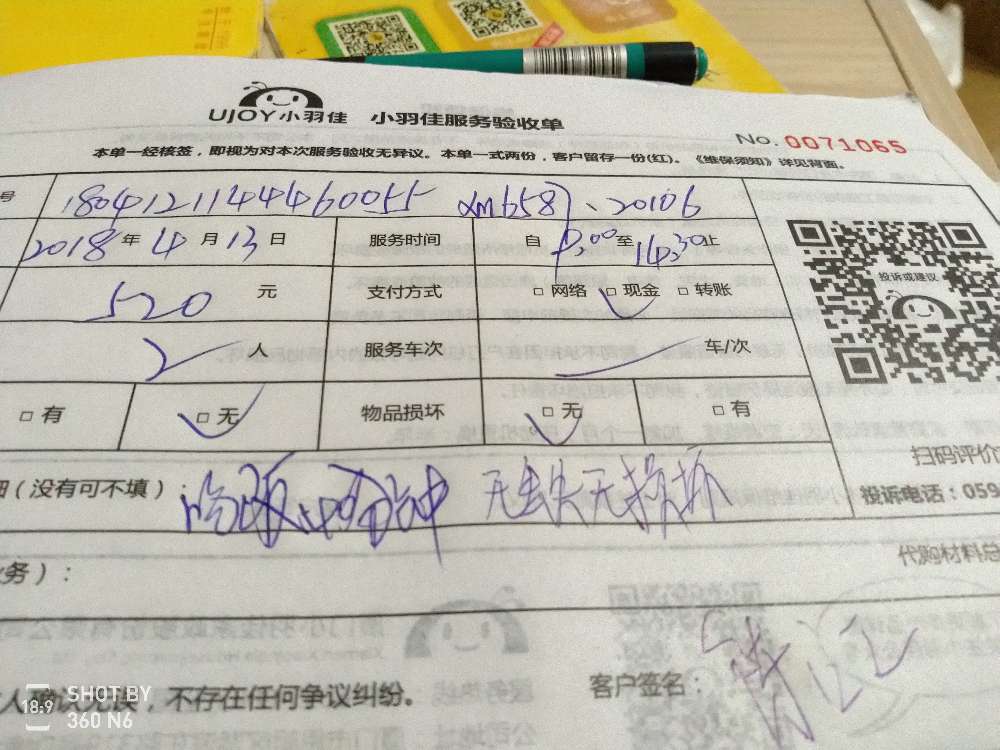 UJOY小羽佳 小羽佳服务验收单
No. 0071065
本单一经核签，即视为对本次服务验收无异议。本单一式两份，客户留存一份(红)。《维保须知》详见背面。
号 18041211444460055 xm6587、20106
2018年4月13日 服务时间 自 9:00至14:30止
520 元 支付方式 □网络 □现金 □转账
投诉或建议
2 人 服务车次 车/次
□有 □无 物品损坏 □无 □有
扫码评价
细（没有可不填）： 吃饭40分钟 无丢失无损坏
投诉电话：059
代购材料总
务）：
人确认无误，不存在任何争议纠纷。
客户签名：
SHOT BY
360 N6